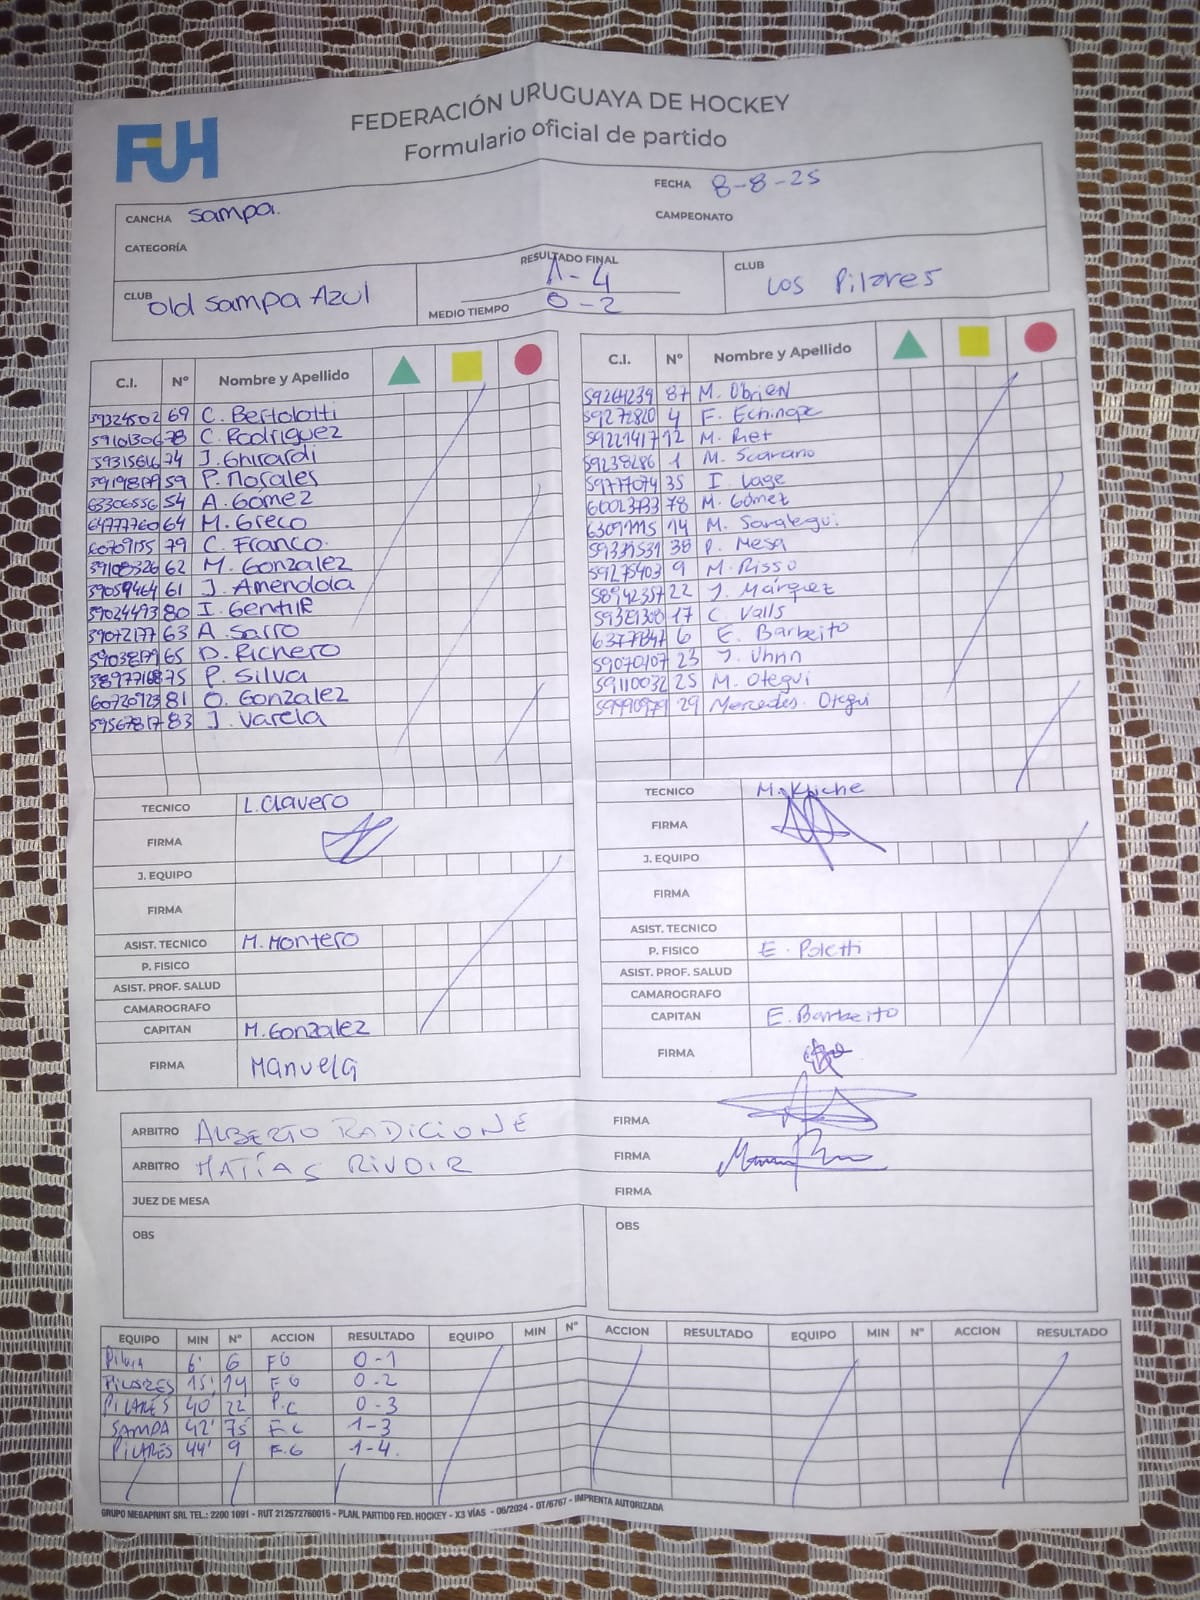 FUH
FEDERACIÓN URUGUAYA DE HOCKEY
Formulario oficial de partido
CANCHA Sampa.
FECHA 8-8-25
CATEGORÍA
CAMPEONATO
CLUB Old Sampa Azul
RESULTADO FINAL 1-4
MEDIO TIEMPO 0-2
CLUB Los Pilares
C.I. Nº Nombre y Apellido
59324502 69 C. Bertolotti
59101306 78 C. Rodriguez
59315616 74 J. Ghirardi
59198179 59 P. Morales
63306556 54 A. Gómez
64777760 64 M. Greco
60709155 79 C. Franco.
59108326 62 M. Gonzalez
59059464 61 J. Amendola
59024493 80 I. Gentile
59072177 63 A. Sarro
59038179 65 D. Richero
75 P. Silva
60720923 81 O. Gonzalez
59567817 83 J. Varela
TECNICO L. Clavero
FIRMA
J. EQUIPO
FIRMA
ASIST. TECNICO M. Montero
P. FISICO
ASIST. PROF. SALUD
CAMAROGRAFO
CAPITAN M. Gonzalez
FIRMA Manuela
C.I. Nº Nombre y Apellido
59264239 87 M. Obrien
59272820 4 F. Echinope
59221417 12 M. Riet
59238286 1 M. Scarano
59777074 35 I. Lage
60023733 78 M. Gómez
14 M. Saralegui
38 P. Mesa
59275403 9 M. Risso
58942357 22 J. Márquez
17 C. Valls
6 E. Barbeito
59070107 23
59110032 25 M. Otegui
59990979 29 Mercedes Otegui
TECNICO
FIRMA
J. EQUIPO
FIRMA
ASIST. TECNICO
P. FISICO E. Poletti
ASIST. PROF. SALUD
CAMAROGRAFO
CAPITAN E. Barbeito
FIRMA
ARBITRO ALBERTO RADICIONE FIRMA
ARBITRO MATÍAS RIVOIR FIRMA
JUEZ DE MESA FIRMA
OBS OBS
EQUIPO MIN Nº ACCION RESULTADO EQUIPO MIN Nº ACCION RESULTADO EQUIPO MIN Nº ACCION RESULTADO
6' 6 FG 0-1
PILARES 15' 14 F.G 0-2
PILARES 40' 22 P.C 0-3
SAMPA 42' 75 1-3
PILARES 44' 9 F.G 1-4.
GRUPO MEGAPRINT SRL TEL.: 2200 1091 - RUT 212572760015 - PLAN. PARTIDO FED. HOCKEY - X3 VÍAS - 06/2024 - OT/6767 - IMPRENTA AUTORIZADA